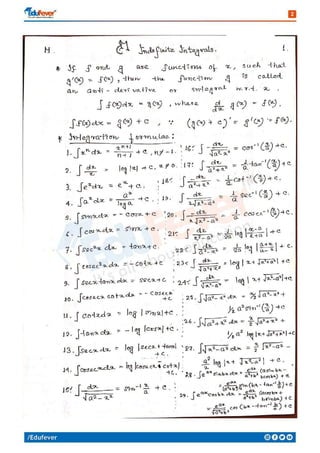 Edufever
2
M.
Indefinite Integrals.
1.
* If f and g are functions of x, such that
g'(x) = f(x), then the function g is called
an anti-derivative or integral w.r.t. x.
∫ f(x)dx = g(x), where d/dx g(x) = f(x).
∫ f(x)dx = g(x) + c, ∵ (g(x) + c)' = g'(x) = f(x).
* Integration formulae:
1. ∫ xⁿdx = xⁿ⁺¹/n+1 + c, n≠-1.
2. ∫ dx/x = log|x| + c, x≠0.
3. ∫ eˣdx = eˣ + c.
4. ∫ aˣdx = aˣ/log a + c.
5. ∫ sinx dx = -cosx + c
6. ∫ cosx dx = sinx + c.
7. ∫ sec²x dx = tanx + c.
8. ∫ cosec²x dx = -cotx + c
9. ∫ secx tanx dx = secx + c.
10. ∫ cosecx cotx dx = -cosecx + c
11. ∫ cotx dx = log|sinx| + c.
12. ∫ tanx dx = -log|cosx| + c.
13. ∫ secx dx = log|secx + tanx| + c.
14. ∫ cosecx dx = log|cosecx - cotx| + c.
15. ∫ dx/√a²-x² = sin⁻¹ x/a + c.
16. ∫ - dx/√a²-x² = cos⁻¹(x/a) + c.
17. ∫ dx/a²+x² = 1/a tan⁻¹(x/a) + c.
18. ∫ - dx/a²+x² = 1/a cot⁻¹(x/a) + c.
19. ∫ dx/x√x²-a² = 1/a sec⁻¹(x/a) + c.
20. ∫ - dx/x√x²-a² = 1/a cosec⁻¹(x/a) + c.
21. ∫ dx/x²-a² = 1/2a log|x-a/x+a| + c
22. ∫ dx/a²-x² = 1/2a log|a+x/a-x| + c.
23. ∫ dx/√a²+x² = log|x+√x²+a²| + c
24. ∫ dx/√x²-a² = log|x+√x²-a²| + c
25. ∫ √a²-x² dx = x/2 √a²-x² +
1/2 a² sin⁻¹(x/a) + c
26. ∫ √a²+x² dx = x/2 √x²+a² +
1/2 a² log|x+√x²+a²| + c
27. ∫ √x²-a² dx = x/2 √x²-a² -
a²/2 log|x+√x²-a²| + c.
28. ∫ eᵃˣ sinbx dx = eᵃˣ/a²+b² (a sinbx - b cosbx) + c
= eᵃˣ/√a²+b² sin(bx - tan⁻¹ b/a) + c
29. ∫ eᵃˣ cosbx dx = eᵃˣ/a²+b² (a cosbx + b sinbx) + c
= eᵃˣ/√a²+b² cos(bx - tan⁻¹ b/a) + c
/Edufever